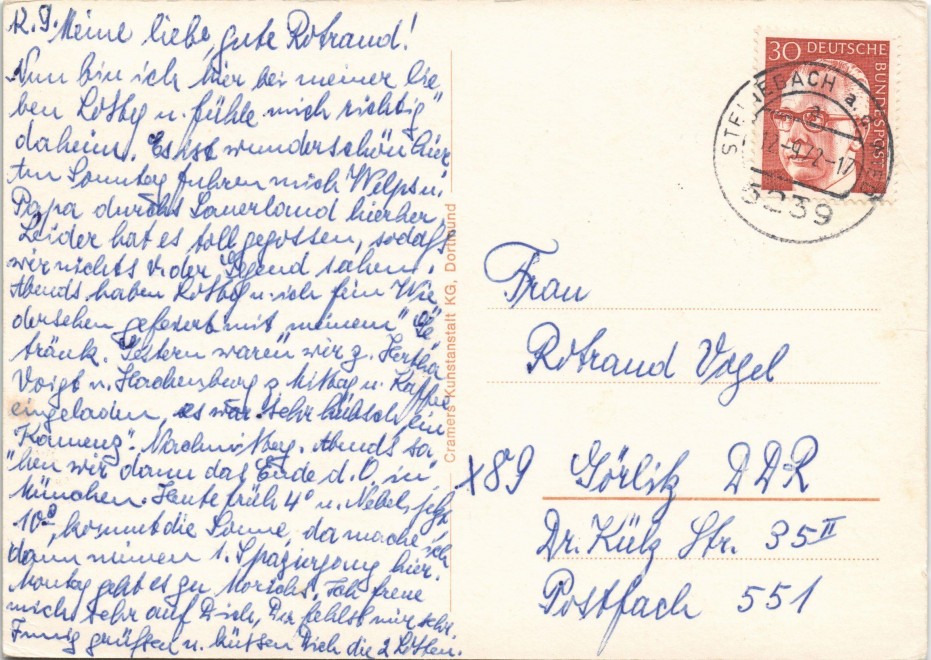 12.9. Meine liebe, gute Rotraud!
Nun bin ich hier bei meiner lie-
ben Lotte u. fühle mich richtig
daheim. Es ist wunderschön hier
Am Sonntag fuhren mich Welps u.
Papa durchs Sauerland hierher,
Leider hat es toll gegossen, sodaß
wir nichts v. der Gegend sahen.
Abends haben u. ich fein Wie-
dersehen gefeiert mit "meinem" Ge-
tränk. Gestern waren wir z. Hertha
Voigt n. Hachenburg z. Mittag u. Kaffee
eingeladen, es war sehr hübsch, ein
"Kamenz" Nachmittag. Abends sa-
hen wir dann das Ende d. O. in
München. Heute früh 4° u. Nebel, jetzt
10°°, kommt die Sonne, da mache ich
dann meinen 1. Spaziergang hier.
Montag geht es zu Ich freue
mich sehr auf Dich, Du fehlst mir sehr.
Innig grüßen u. küssen Dich die 2 Lotten.
Cramers Kunstanstalt KG, Dortmund
30 DEUTSCHE BUNDESPOST
12.-9.72-17
5239
Frau
Rotraud Vogel
X89 Görlitz DDR
Dr. Külz Str. 35 II
Postfach 551